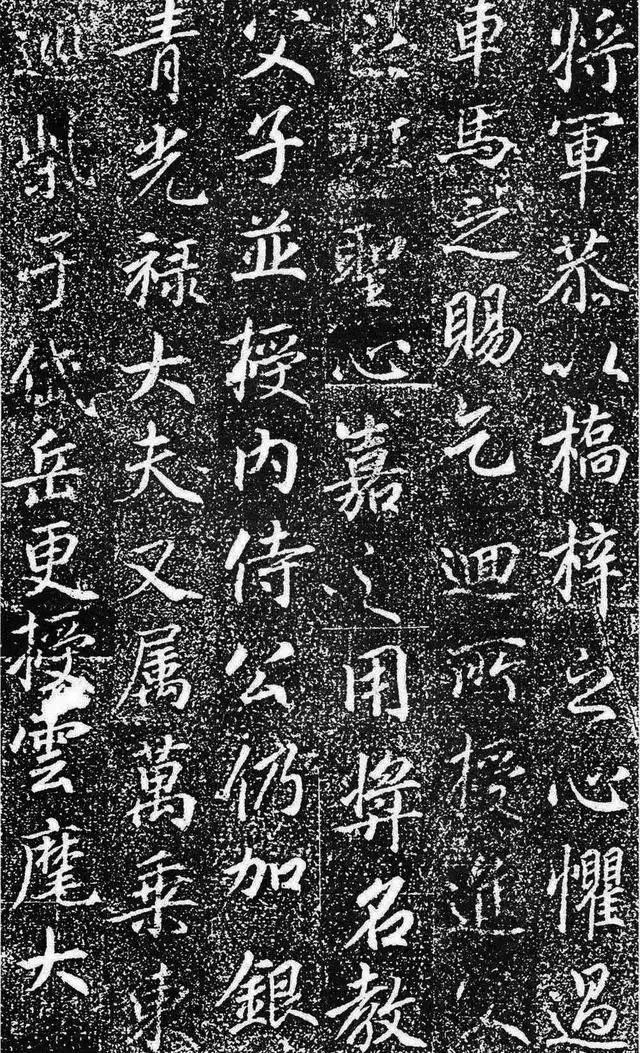 將軍恭以橋梓之心懼過
車馬之賜乞迴所授進父
聖心嘉之用奬名教
父子並授内侍公仍加銀
青光禄大夫又属萬乗東
巡柴于岱岳更授雲麾大